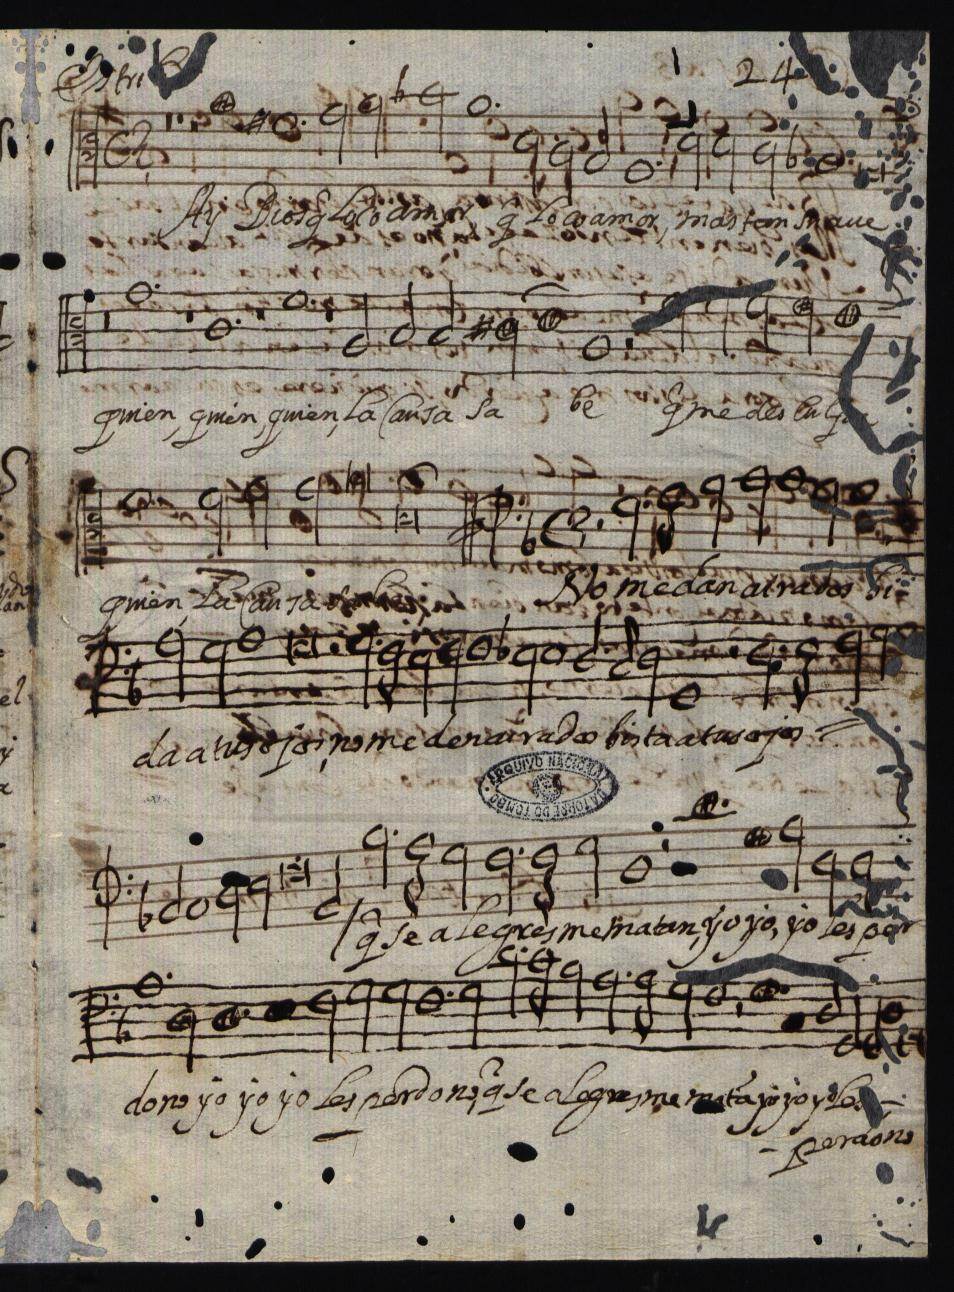 Estri
24
Ay Dios q̃ loco amor q̃ loco amor, mas tan suaue
quien, quien, quien, la Causa sa be q̃ me des culpa
quien, La Causa
No me dan ayrados bis
da a tus ojos, no me den airados bista a tus ojos
ARQUIVO NACIONAL DA TORRE DO TOMBO
q̃ se alegres me matan, yo yo, yo les per
dono yo yo yo les perdono, q̃ se alegres me matã yo yo yo les
perdono